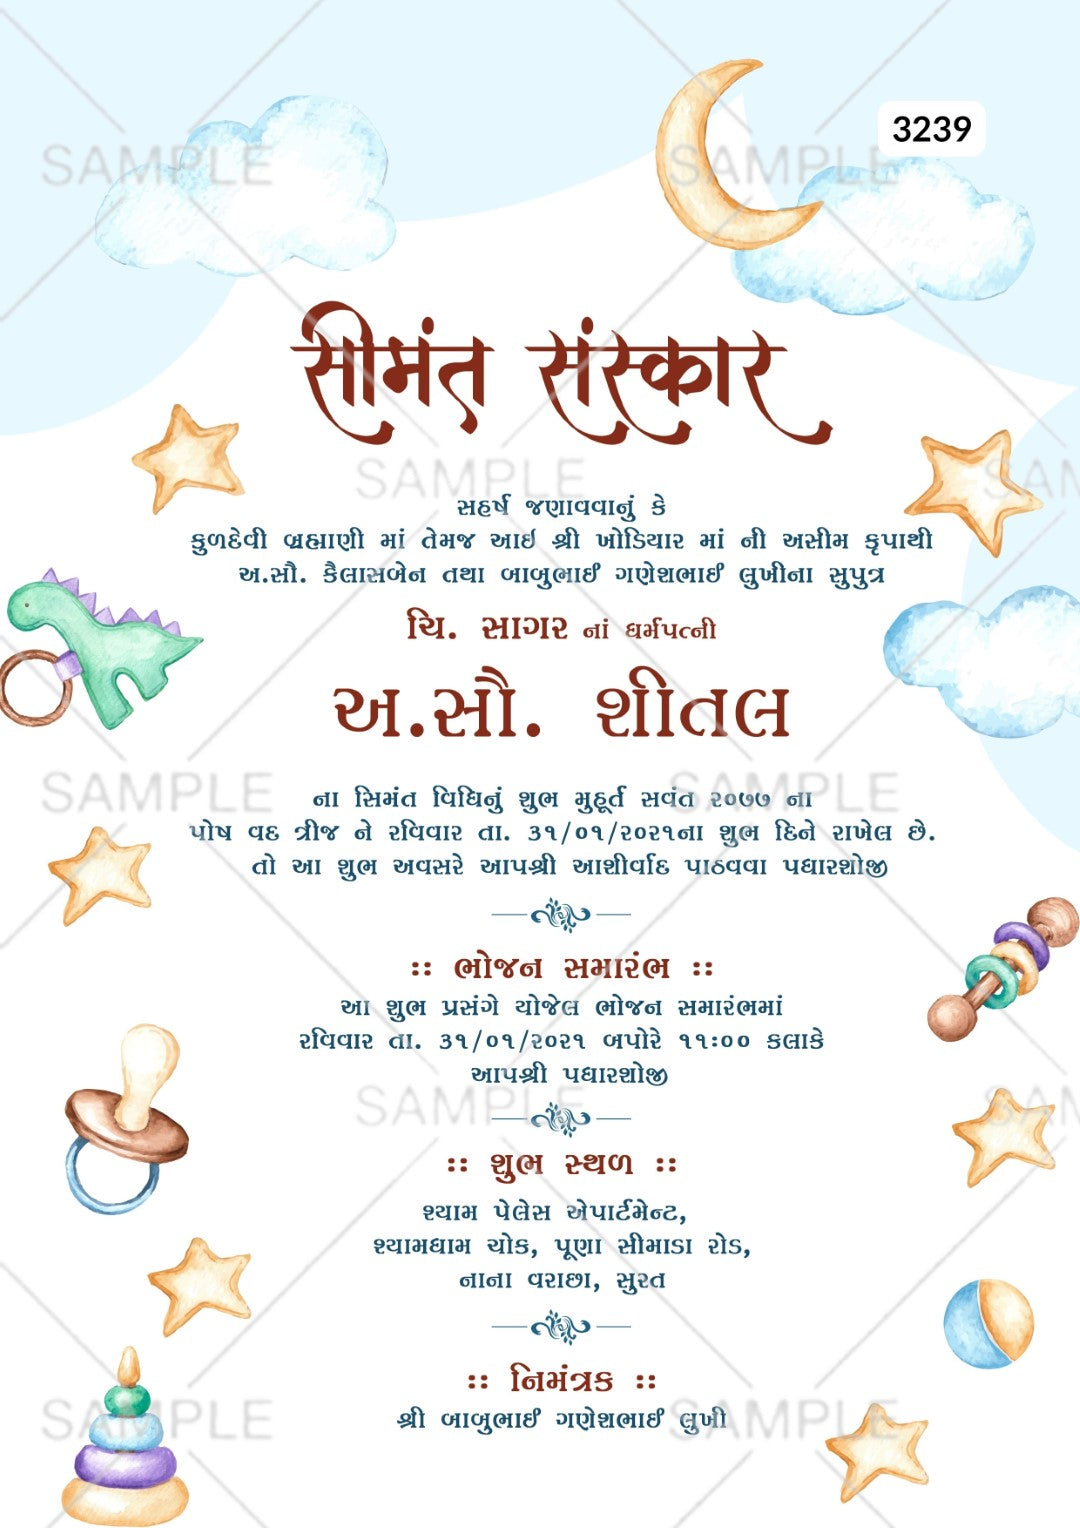 3239
सीमंत संस्कार
સહર્ષ જણાવવાનું કે
કુળદેવી બ્રહ્માણી માં તેમજ આઇ શ્રી ખોડિયાર માં ની અસીમ કૃપાથી
અ.સૌ. કૈલાસબેન તથા બાબુભાઈ ગણેશભાઈ લુખીના સુપુત્ર
ચિ. સાગર નાં ધર્મપત્ની
અ.સૌ. શીતલ
ના સિમંત વિધિનું શુભ મુહૂર્ત સવંત ૨૦૭૭ ના
પોષ વદ ત્રીજ ને રવિવાર તા. ૩૧/૦૧/૨૦૨૧ના શુભ દિને રાખેલ છે.
તો આ શુભ અવસરે આપશ્રી આશીર્વાદ પાઠવવા પધારશોજી
:: ભોજન સમારંભ ::
આ શુભ પ્રસંગે યોજેલ ભોજન સમારંભમાં
રવિવાર તા. ૩૧/૦૧/૨૦૨૧ બપોરે ૧૧:૦૦ કલાકે
આપશ્રી પધારશોજી
:: શુભ સ્થળ ::
શ્યામ પેલેસ એપાર્ટમેન્ટ,
શ્યામધામ ચોક, પૂણા સીમાડા રોડ,
નાના વરાછા, સુરત
:: નિમંત્રક ::
શ્રી બાબુભાઈ ગણેશભાઈ લુખી
SAMPLE
SAMPLE
SAMPLE
SA
SAMPLE
SAMPLE
SAMPLE
SAM
SAMPLE
SAMPLE